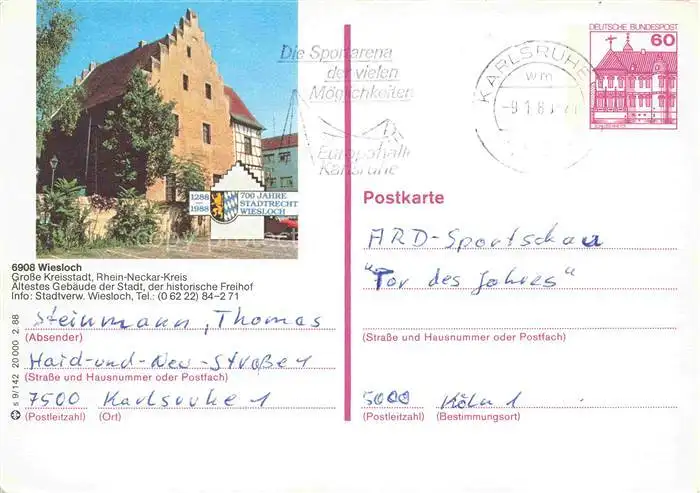 Die Sportarena
der vielen
Möglichkeiten
Europahalle
Karlsruhe
KARLSRUHE
wm
DEUTSCHE BUNDESPOST
60
1288
1988
700 JAHRE
STADTRECHT
WIESLOCH
6908 Wiesloch
Große Kreisstadt, Rhein-Neckar-Kreis
Ältestes Gebäude der Stadt, der historische Freihof
Info: Stadtverw. Wiesloch, Tel.: (0 62 22) 84-2 71
s 9/142 20 000 2.88
Steinmann, Thomas
(Absender)
Haid-und-Neu-Straße 1
(Straße und Hausnummer oder Postfach)
7500 Karlsruhe 1
(Postleitzahl) (Ort)
Postkarte
ARD-Sportschau
"Tor des Jahres"
(Straße und Hausnummer oder Postfach)
5000 Köln 1
(Postleitzahl) (Bestimmungsort)